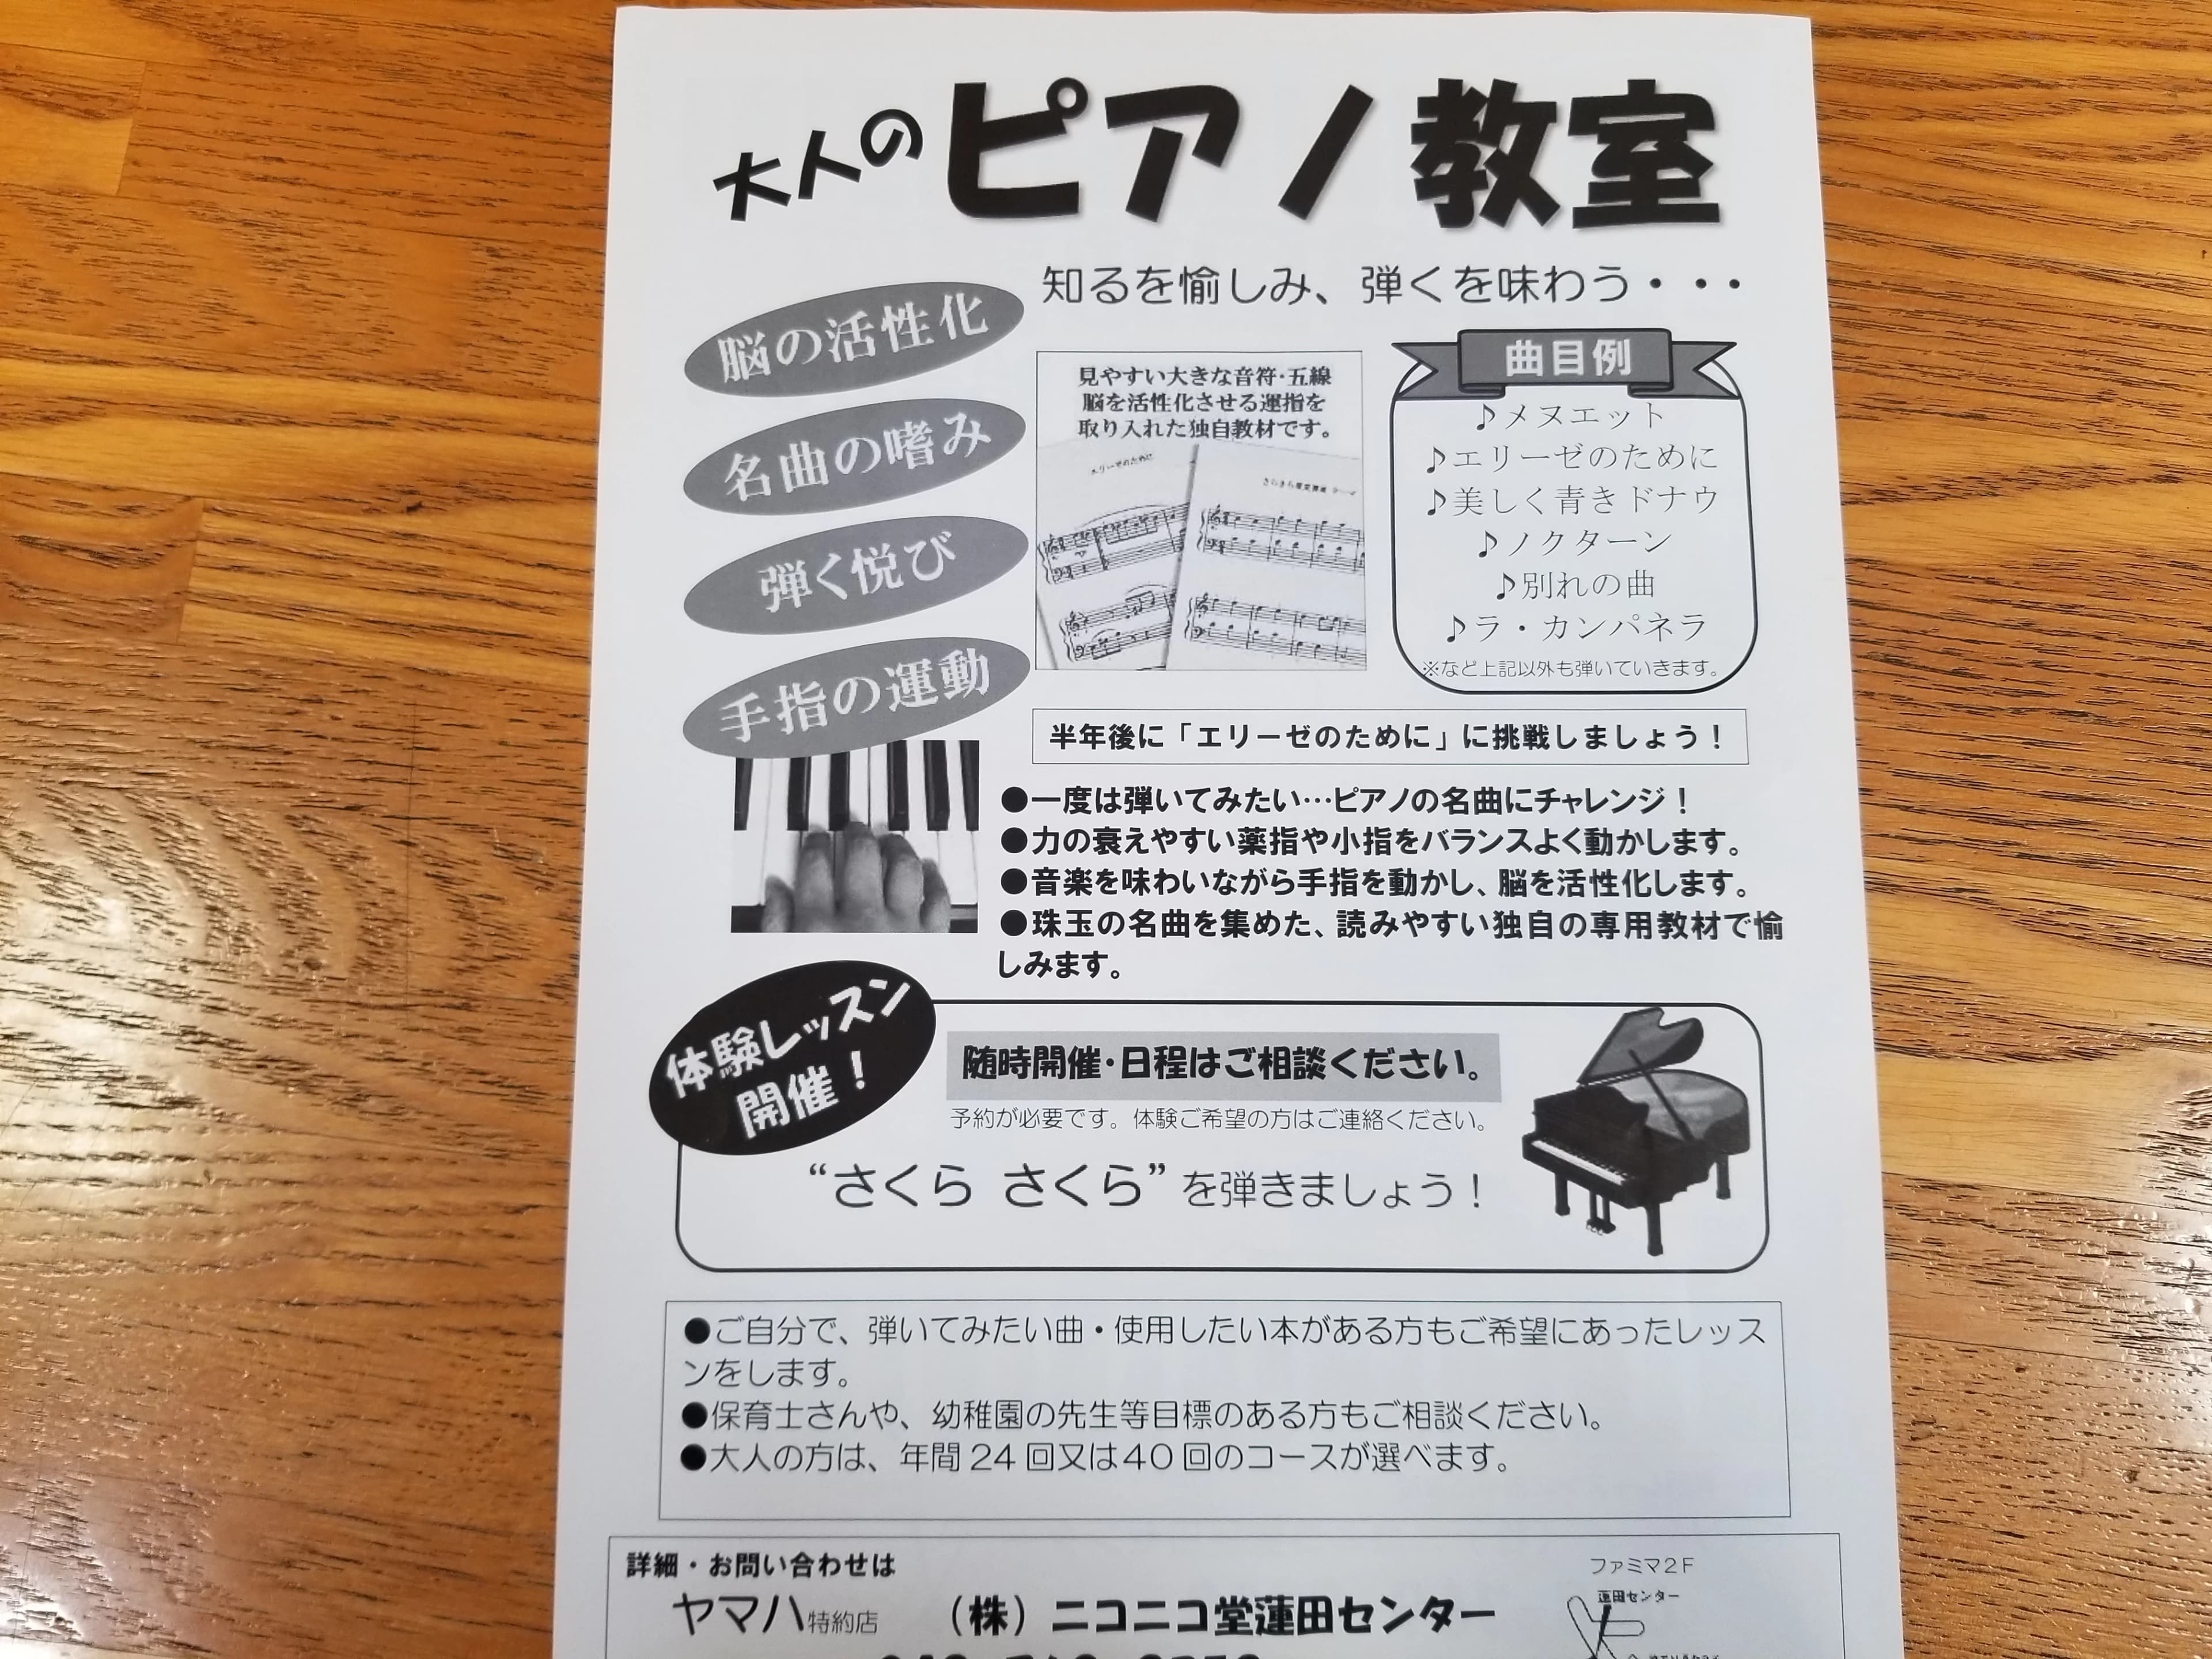 大人のピアノ教室
知るを愉しみ、弾くを味わう・・・
脳の活性化
名曲の嗜み
弾く悦び
手指の運動
見やすい大きな音符・五線
脳を活性化させる運指を
取り入れた独自教材です。
エリーゼのために
曲目例
♪メヌエット
♪エリーゼのために
♪美しく青きドナウ
♪ノクターン
♪別れの曲
♪ラ・カンパネラ
※など上記以外も弾いていきます。
半年後に「エリーゼのために」に挑戦しましょう！
●一度は弾いてみたい…ピアノの名曲にチャレンジ！
●力の衰えやすい薬指や小指をバランスよく動かします。
●音楽を味わいながら手指を動かし、脳を活性化します。
●珠玉の名曲を集めた、読みやすい独自の専用教材で愉
しみます。
体験レッスン
開催！
随時開催・日程はご相談ください。
予約が必要です。体験ご希望の方はご連絡ください。
“さくら さくら” を弾きましょう！
●ご自分で、弾いてみたい曲・使用したい本がある方もご希望にあったレッス
ンをします。
●保育士さんや、幼稚園の先生等目標のある方もご相談ください。
●大人の方は、年間 24 回又は40 回のコースが選べます。
詳細・お問い合わせは
ヤマハ特約店 （株）ニコニコ堂蓮田センター
ファミマ２Ｆ
蓮田センター